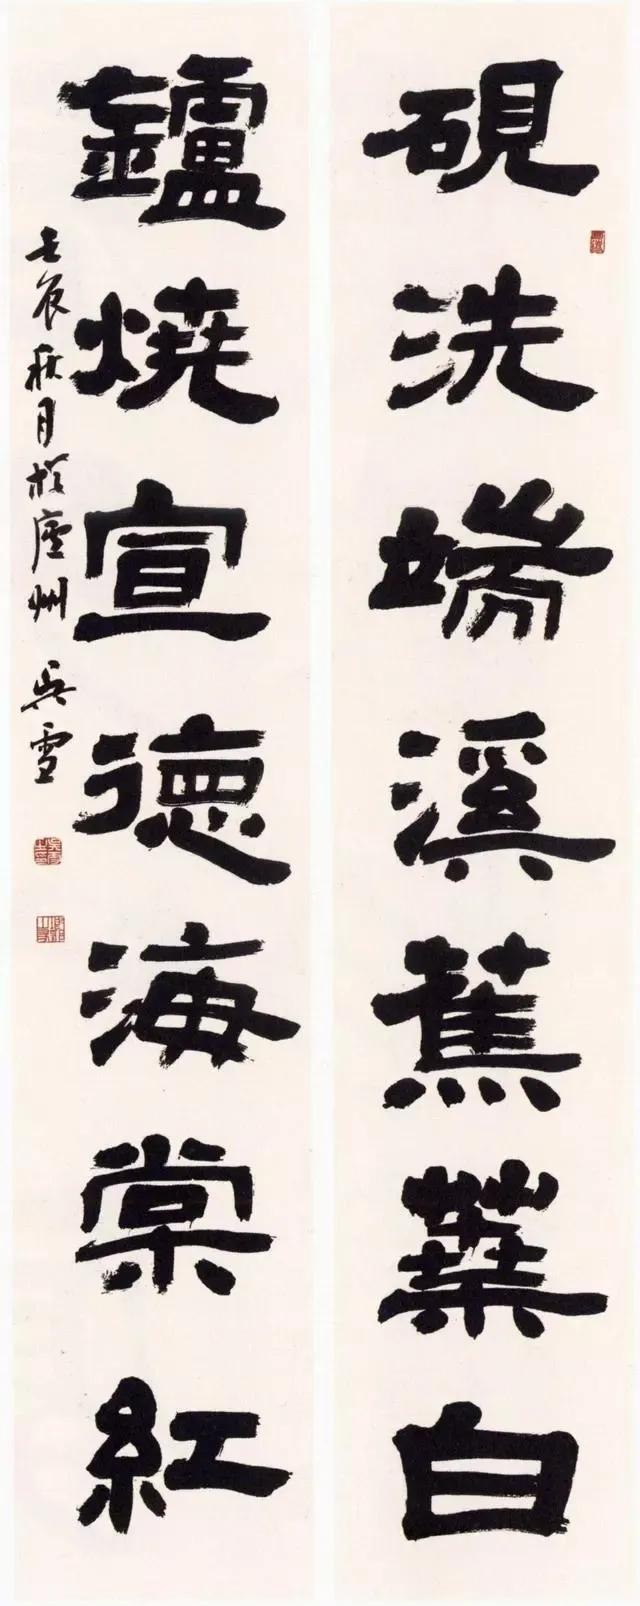 硯洗端溪蕉葉白
鑪燒宣德海棠紅
壬辰秋月於廬州 吳雪